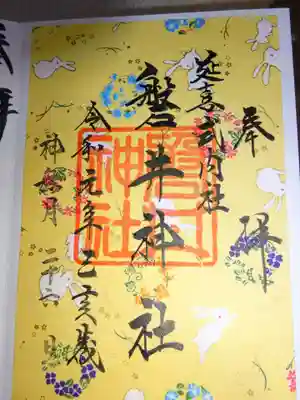 奉拝
延喜式内社
磐井神社
令和元年己亥歳
神無月二十六日
磐井神社